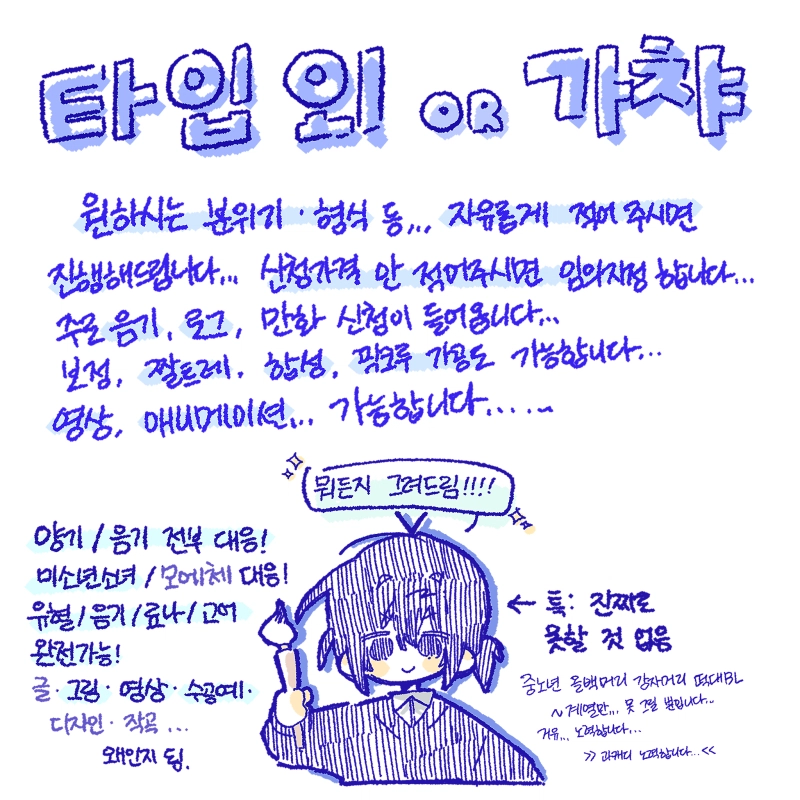 타입 외! OR 갸챠
원하시는 분위기 · 형식 등,,, 자유롭게 적어 주시면
진행해드립니다,,, 신청가격 안 적어주시면 임의지정 합니다...
주로 음기, 로그, 만화 신청이 들어옵니다...
보정, 짤트레, 합성, 픽크루 가공도 가능합니다...
영상, 애니메이션,,, 가능합니다.....
뭐든지 그려드림!!!!
양기 / 음기 전부 대응!
미소년소녀 / 모에체 대응!
유혈 / 음기 / 료나 / 고어
완전가능!
글 · 그림 · 영상 · 수공예 ·
디자인 · 작곡 ...
왜인지 됨.
← 특: 진짜로
못할 것 없음
중노년 올백머리 감자머리 떡대BL
~계열만,,, 못 그릴 뿐입니다..
거유,,, 노력합니다...
>> 과캐디 노력합니다...<<